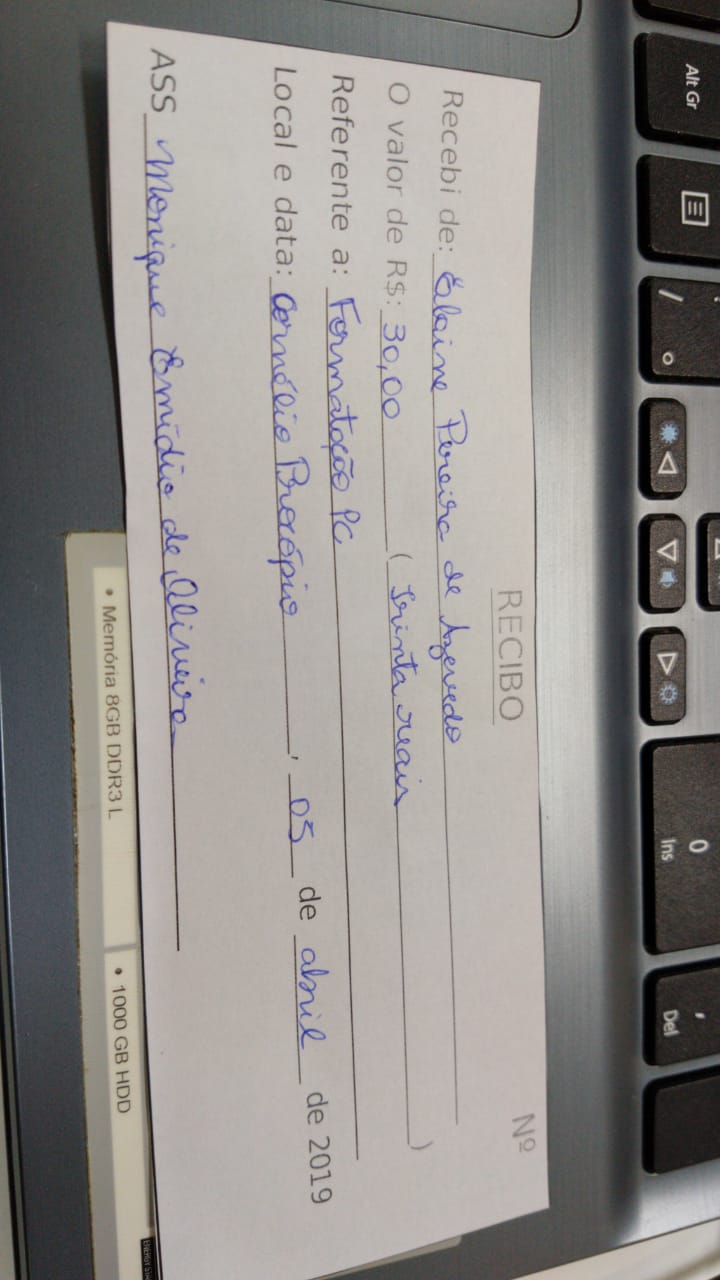 RECIBO
Nº
Recebi de: Elaine Pereira de Azevedo
O valor de R$: 30,00 (trinta reais)
Referente a: Formatação PC
Local e data: Cornélio Procópio, 05 de abril de 2019
ASS Monique Emídio de Oliveira
• Memória 8GB DDR3 L
• 1000 GB HDD
Alt Gr
/
°
0
Ins
,
Del